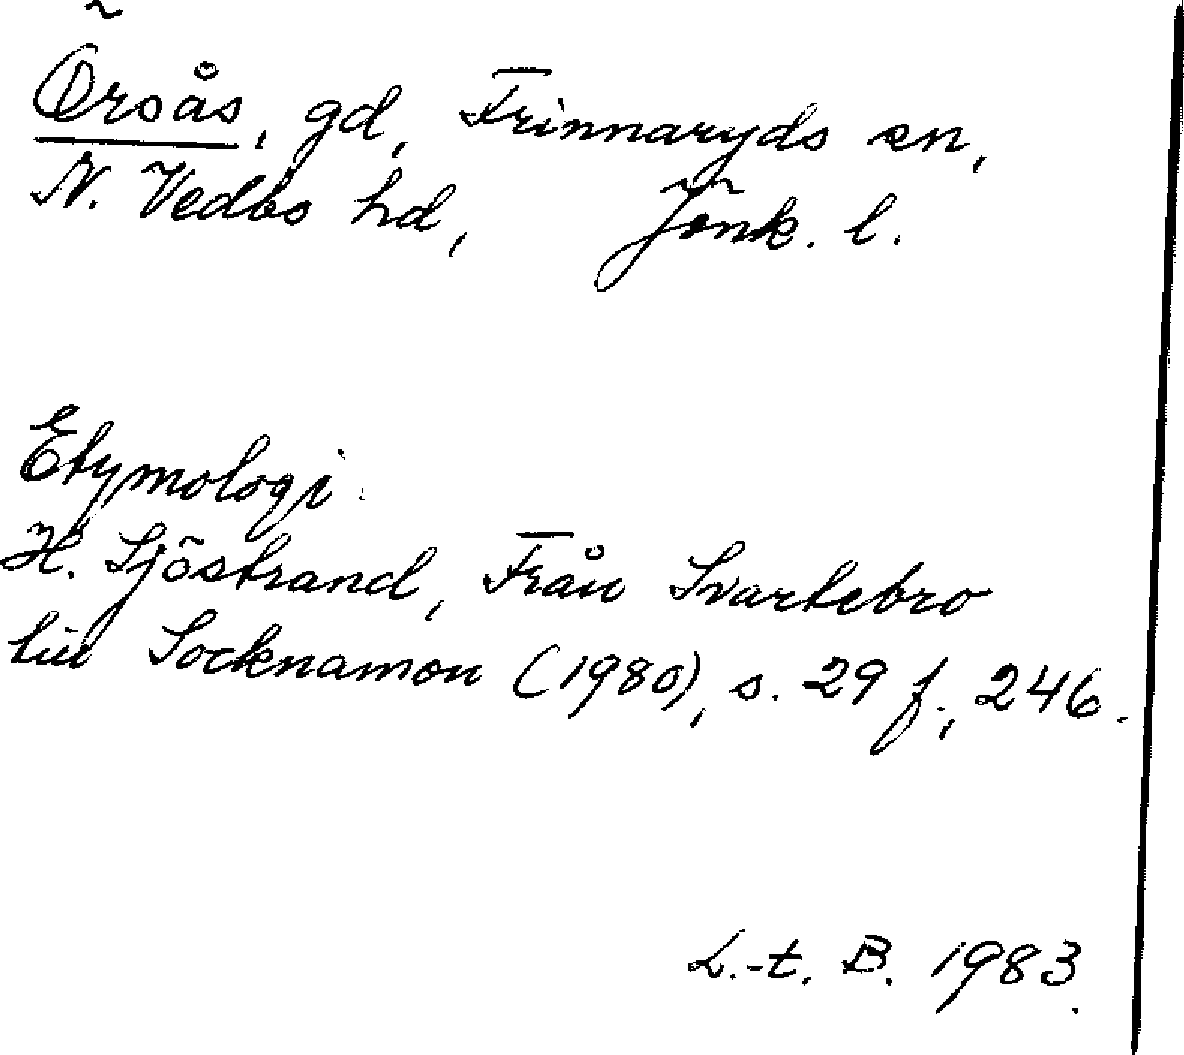 Örsås, gd, Frinnaryds sn,
N. Vedbo hd, Jönk. l.
Etymologi:
H. Sjöstrand, Från Svartebro
till Socknamon (1980), s. 29 f., 246.
L.-t. B. 1983.